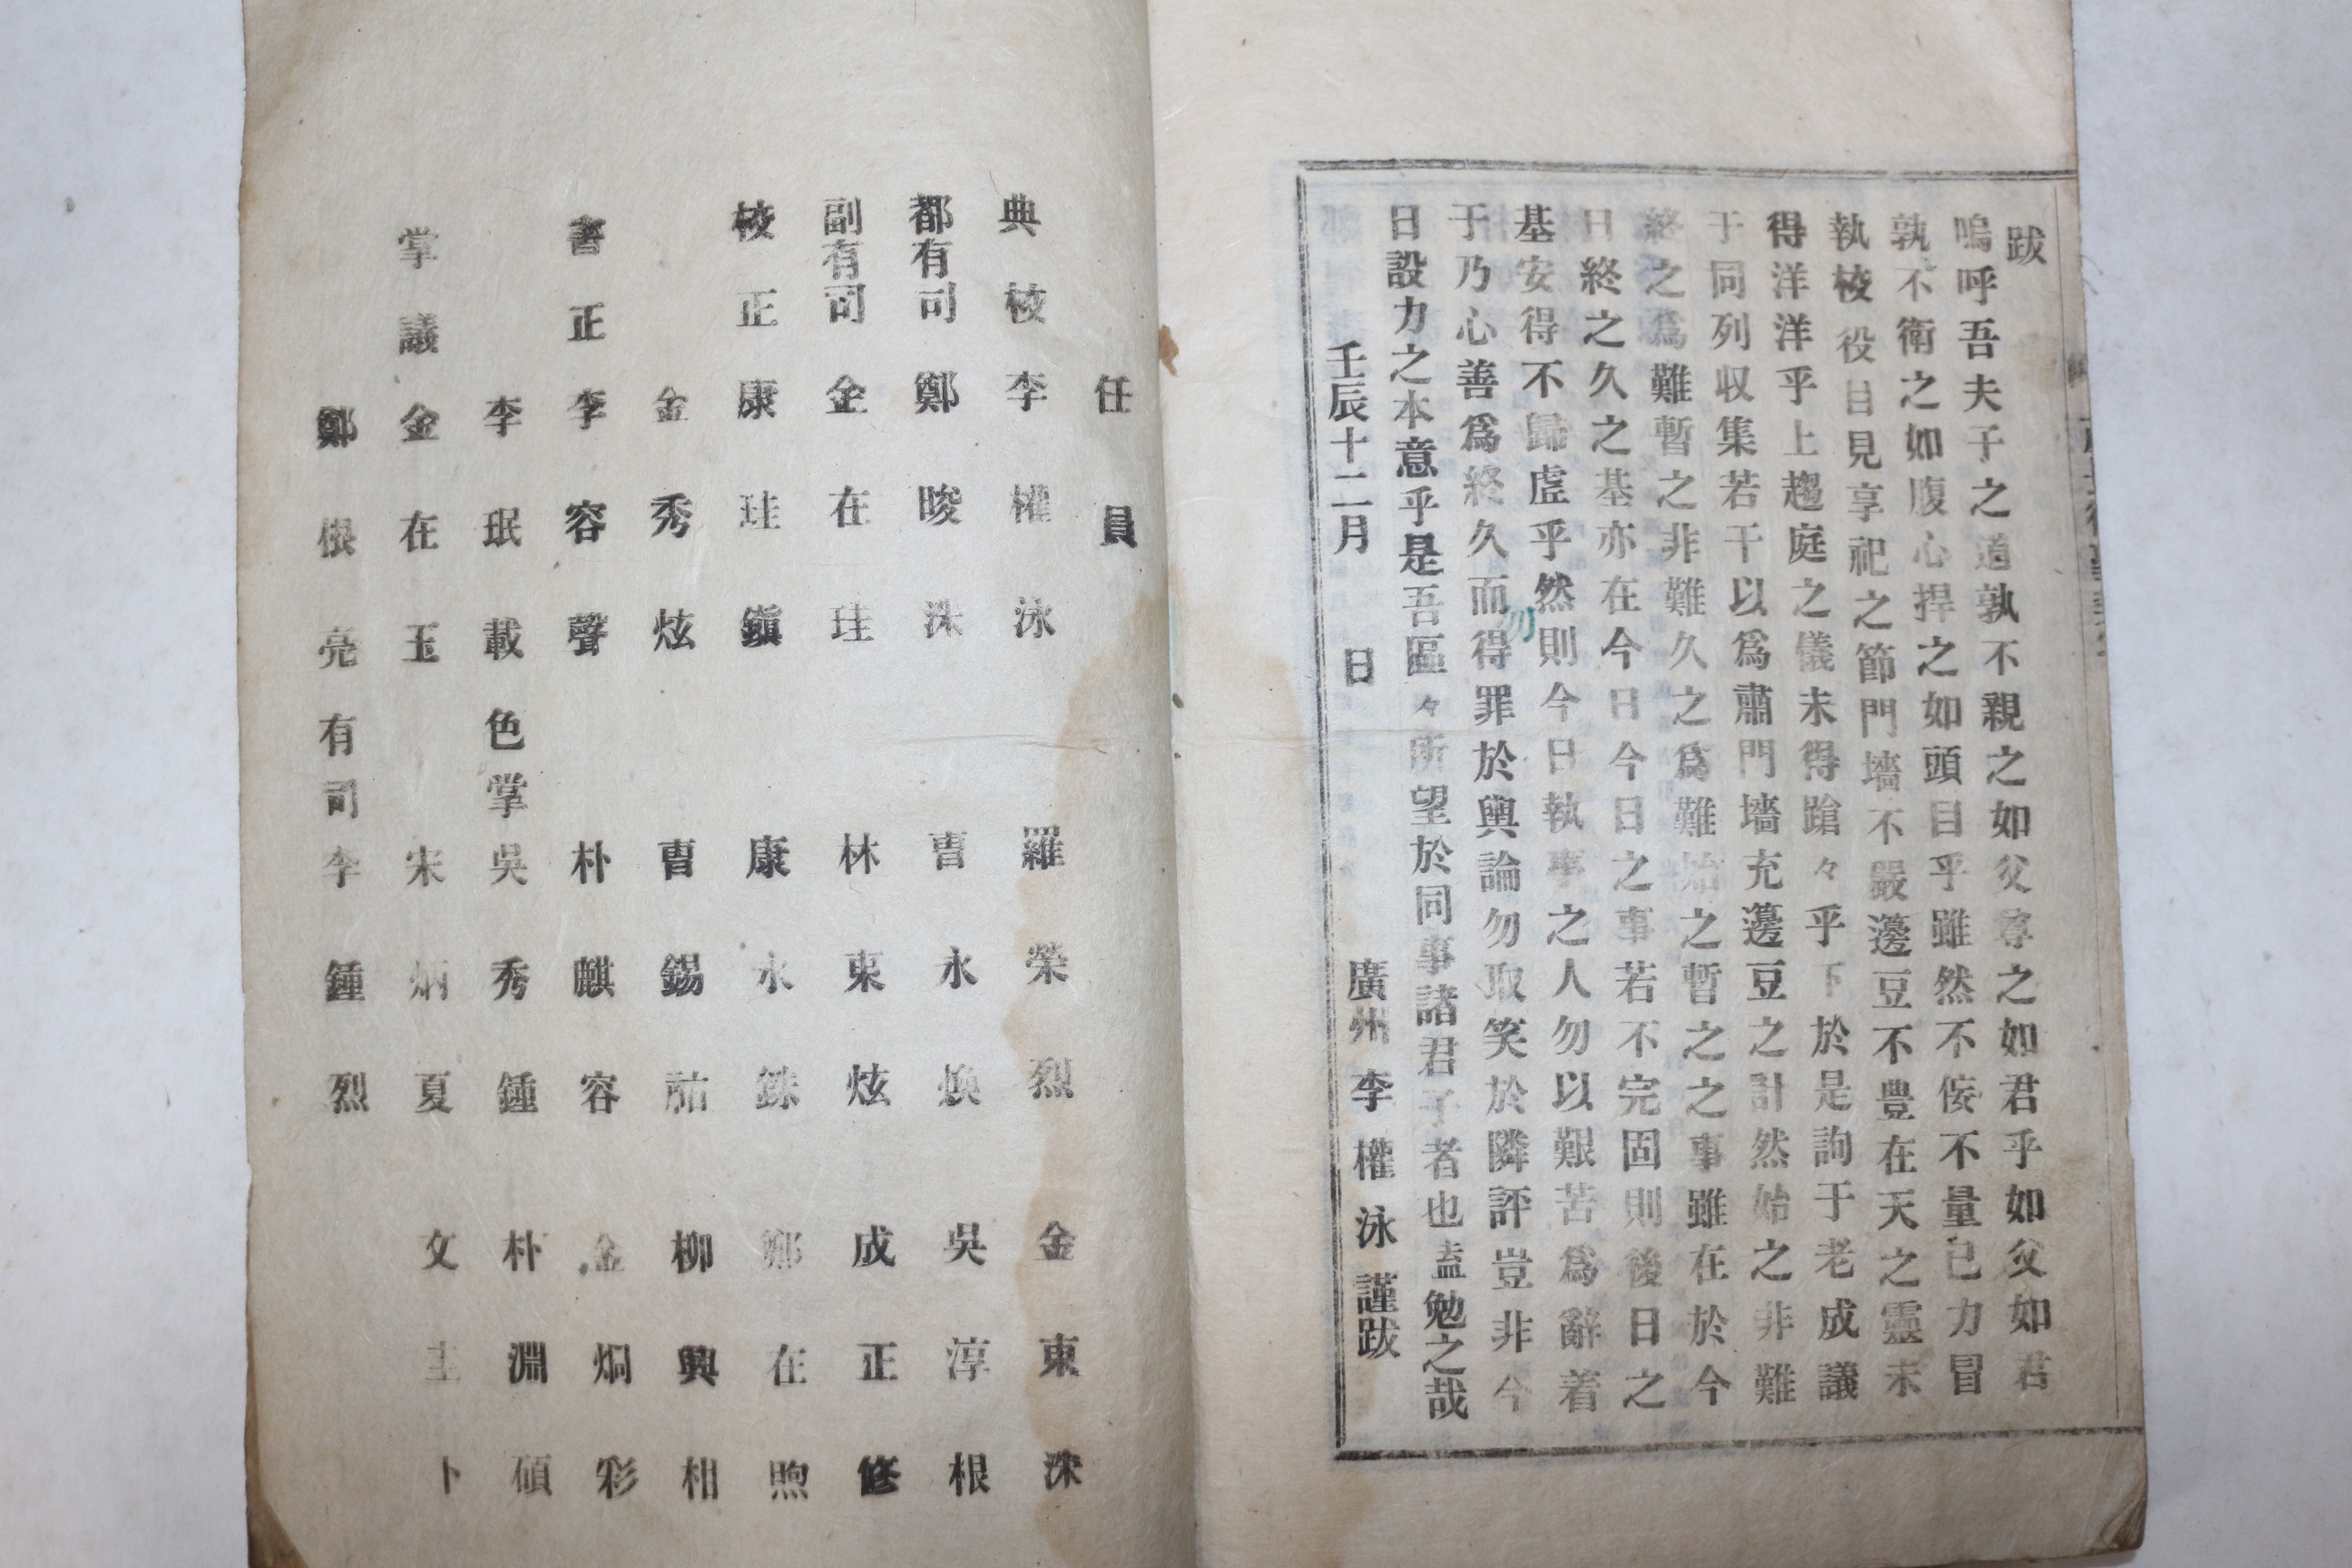 跋
嗚呼吾夫子之道孰不親之如父尊之如君乎如父如君
孰不衛之如腹心捍之如頭目乎雖然不侫不量已力冒
執校役目見享祀之節門墻不嚴籩豆不豊在天之靈未
得洋洋乎上趨庭之儀未得蹌々乎下於是詢于老成議
于同列収集若干以爲肅門墻充籩豆之計然始之非難
終之爲難暫之非難久之爲難始之暫之之事雖在於今
日終之久之基亦在今日今日之事若不完固則後日之
基安得不歸虛乎然則今日執事之人勿以艱苦爲辭着
于乃心善爲終久而勿得罪於輿論勿取笑於隣評豈非今
日設力之本意乎是吾區々所望於同事諸君子者也盍勉之哉
壬辰十二月 日 廣州 李權泳 謹跋
任員
典校 李權泳 羅榮烈 金東洙
都有司 鄭晙洙 曺永煥 吳淳根
副有司 金在珪 林東炫 成正修
校正 康珪鎭 康永銖 鄭在煦
金秀炫 曺錫祜 柳興相
書正 李容聲 朴麒容 金炯彩
李珉載 色掌 吳秀鍾 朴淵碩
掌議 金在玉 宋炳夏 文圭卜
鄭根亮 有司 李鍾烈